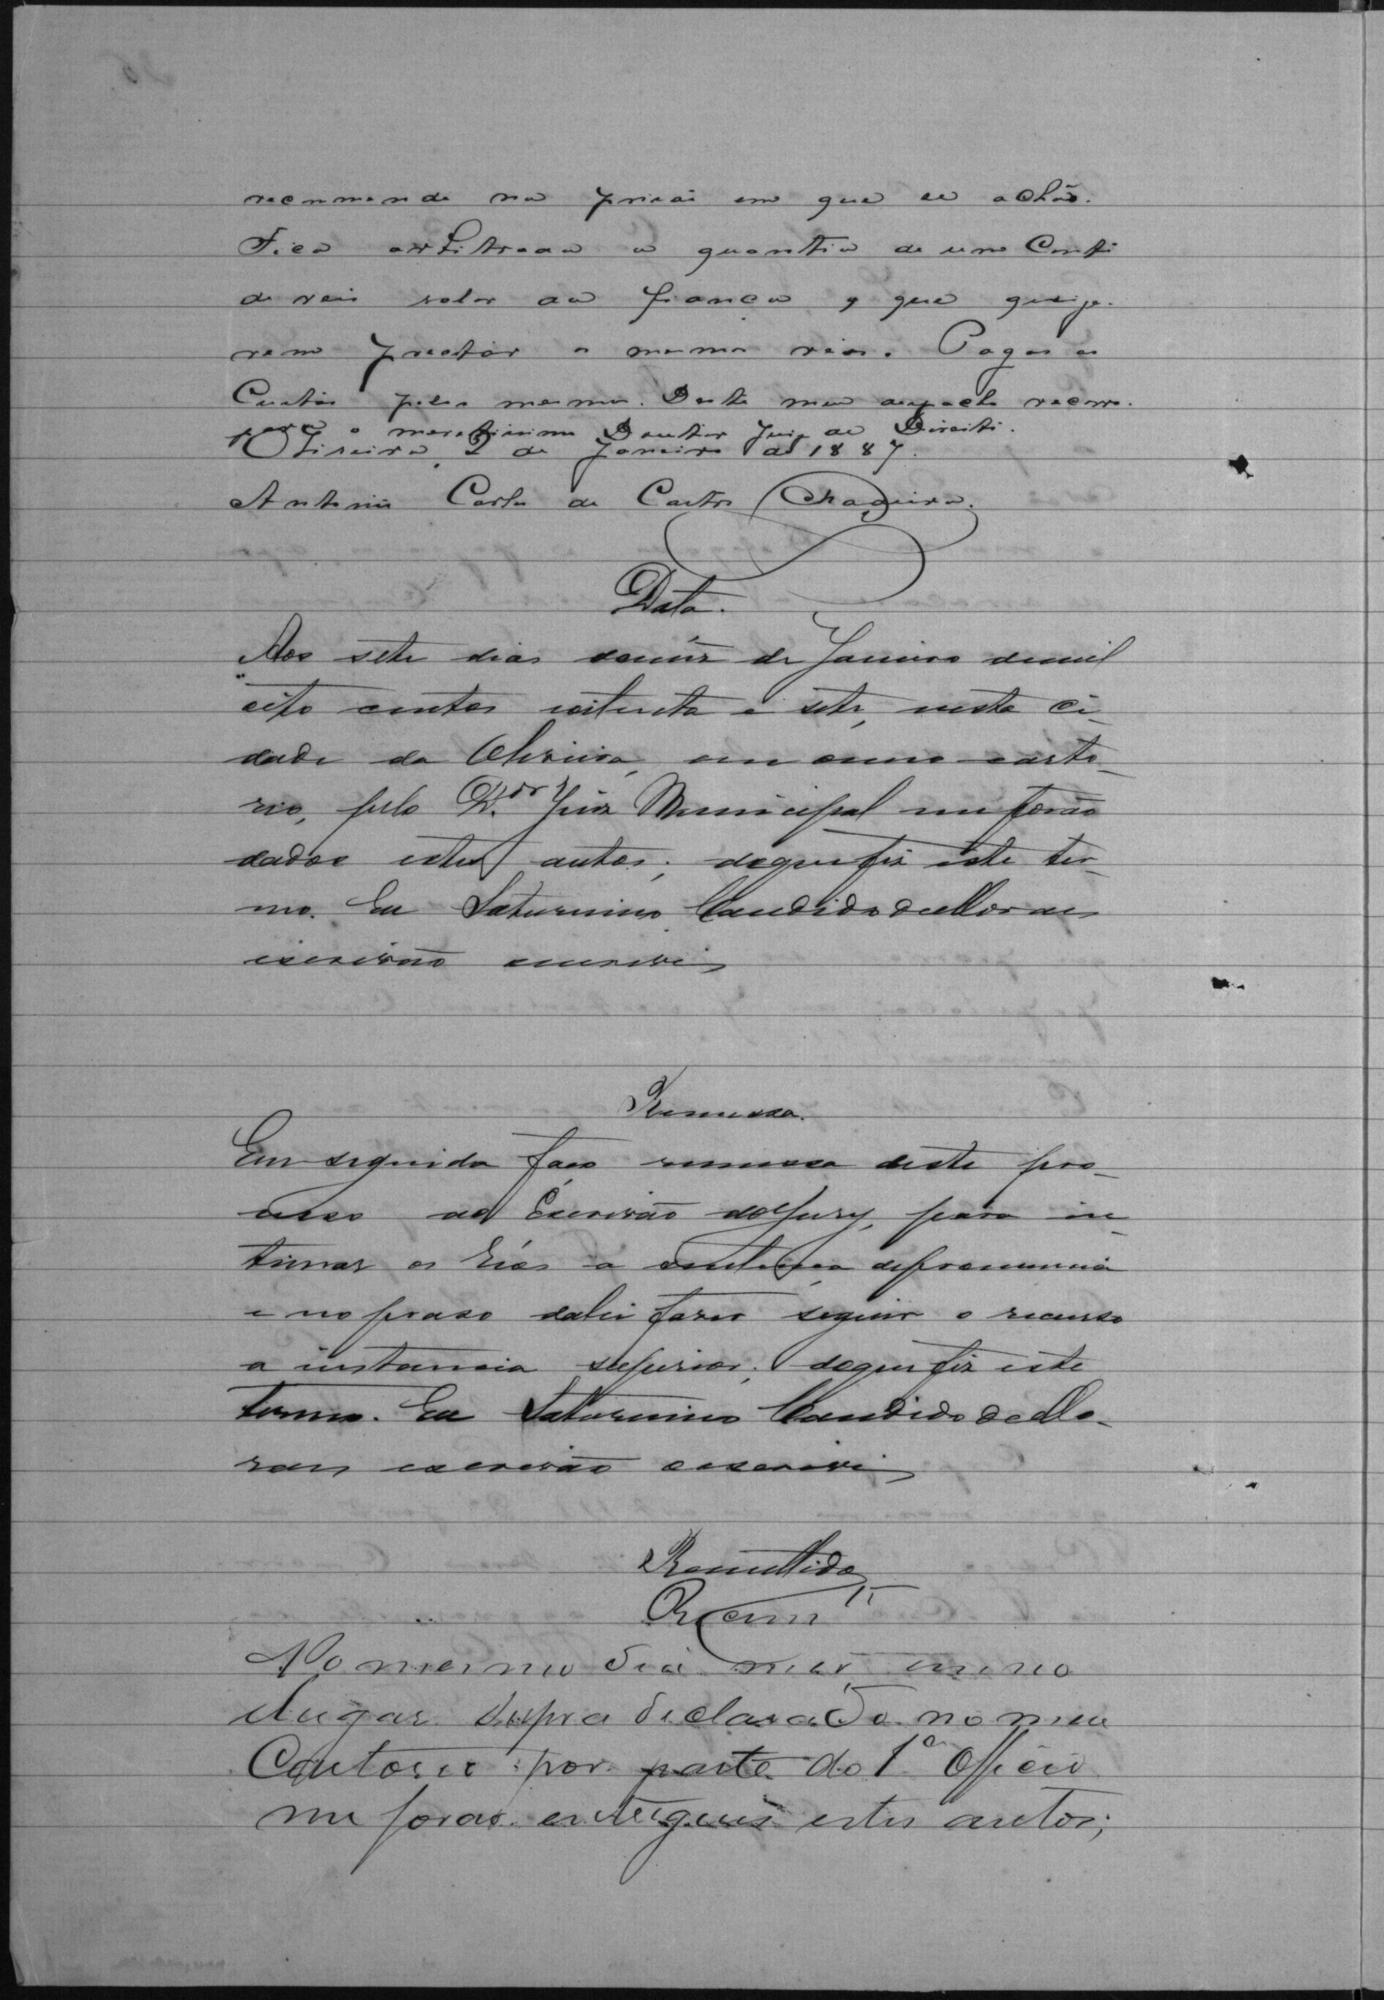 recommende na prisão em que se achão.
Fica arbitrada a quantia de um Conto
de reis valor da fiança, que quize-
rem prestar os mesmos réos. Pagas as
Custas pelos mesmos. Deste meu despacho recorro
para o meretissimo Doutor Juiz de Direito.
Oliveira, 2 de Janeiro de 1887.
Antonio Carlos de Castro Madeira.
Data.
Aos sete dias do mez de Janeiro de mil
oito centos oitenta e sete, nesta ci-
dade da Oliveira, em meu carto-
rio, pelo D.or Juiz Municipal me forão
dados estes autos; do que fiz este ter-
mo. Eu Saturnino Candido de Moraes
escrivão escrevi
Remessa.
Em seguida faço remessa deste pro-
cesso ao Escrivão do Jury, para in-
timar os réos a sentença de pronuncia
e no praso da lei fazer seguir o recurso
a instancia superior; do que fiz este
termo. Eu Saturnino Candido de Mo-
raes escrivão escrevi
Remettido
Recebim.to
No mesmo dia mez, anno
lugar supra declarado no meu
Cartorio por parte do 1º Officio
me forão entregues estes autos;